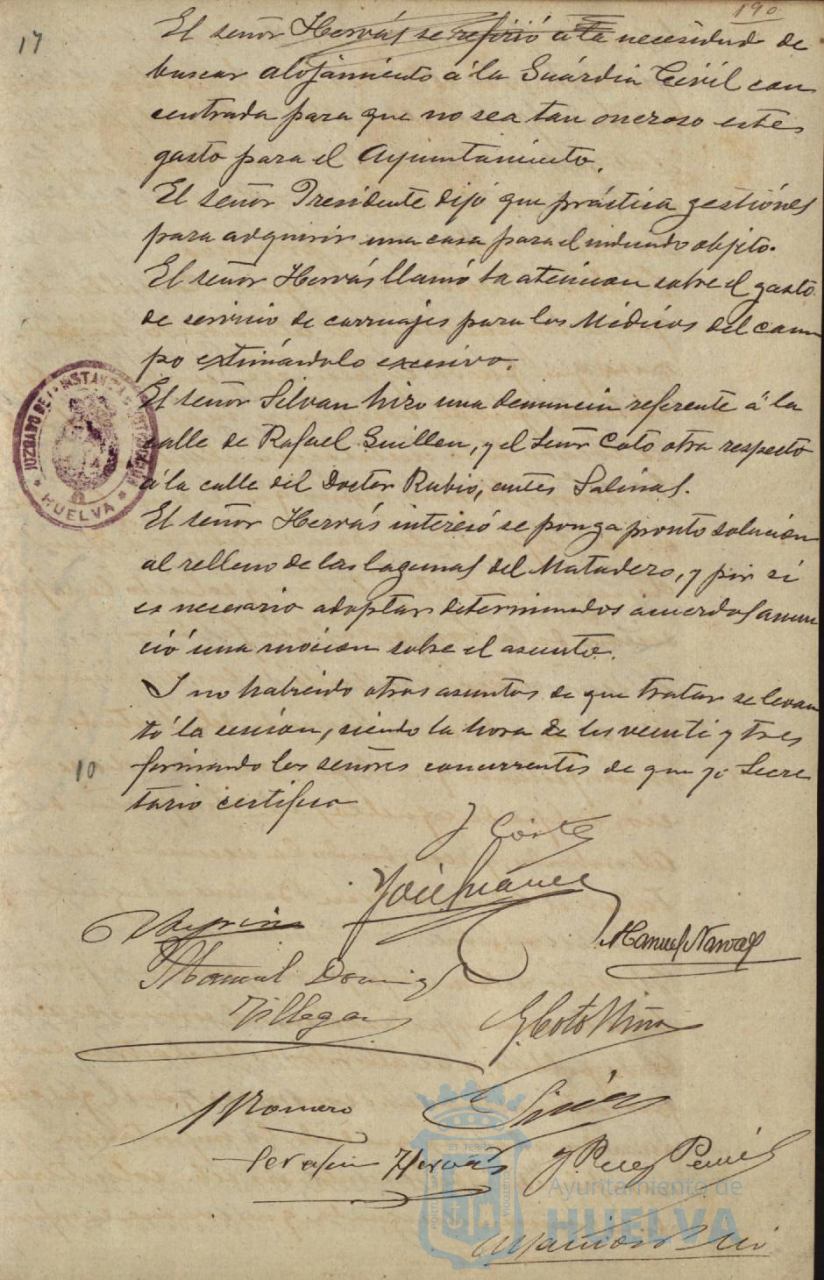 190
17
El señor Hervás se refirió á la necesidad de
buscar alojamiento á la Guardia Civil con
centrada para que no sea tan oneroso este
gasto para el Ayuntamiento.
El señor Presidente dijo que práctica gestiónes
para adquirir una casa para el indicado objeto.
El señor Hervás llamó la atencion sobre el gasto
de servicio de carruajes para los Médicos del cam
po extimándolo excesivo.
El señor Silvan hizo una denuncia referente á la
calle de Rafael Guillen, y el Señor Coto otra respecto
á la calle del Doctor Rubio, antes Salinas.
El señor Hervás interesó se ponga pronto solucion
al relleno de las lagunas del Matadero, y por si
es necesario adoptar determinados acuerdos anun
ció una mocion sobre el asunto.
I no habiendo otros asuntos de que tratar se levan
tó la sesion, siendo la hora de las veinti y tres
firmando los señores concurrentes de que yo Secre
tario certifico
10
JUZGADO DE
HUELVA
J Corte
José Suarez
Manuel Narvaez
Manuel Doming
Villegas
G. Coto Niño
Romero
Serafin Hervás
J. Perez
Ayuntamiento de
HUELVA